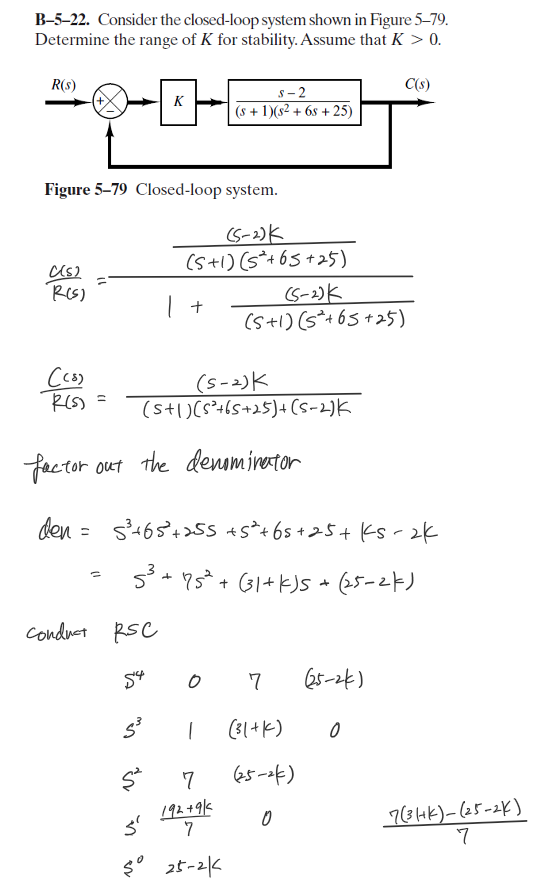 B–5–22. Consider the closed-loop system shown in Figure 5–79.
Determine the range of K for stability. Assume that K > 0.
R(s)
+
−
K
s − 2
(s + 1)(s² + 6s + 25)
C(s)
Figure 5–79 Closed-loop system.
(s-2)K
(s+1)(s²+6s+25)
C(s)
R(s)
=
1 +
(s-2)K
(s+1)(s²+6s+25)
C(s)
R(s)
=
(s-2)K
(s+1)(s²+6s+25)+(s-2)K
factor out the denominator
den = s³+6s²+25s +s²+6s+25+ Ks - 2K
= s³ + 7s² + (31+K)s + (25-2K)
Conduct RSC
s⁴ 0 7 (25-2K)
s³ 1 (31+K) 0
s² 7 (25-2K)
s¹ 192+9K / 7 0
7(31+K)-(25-2K)
7
s⁰ 25-2K